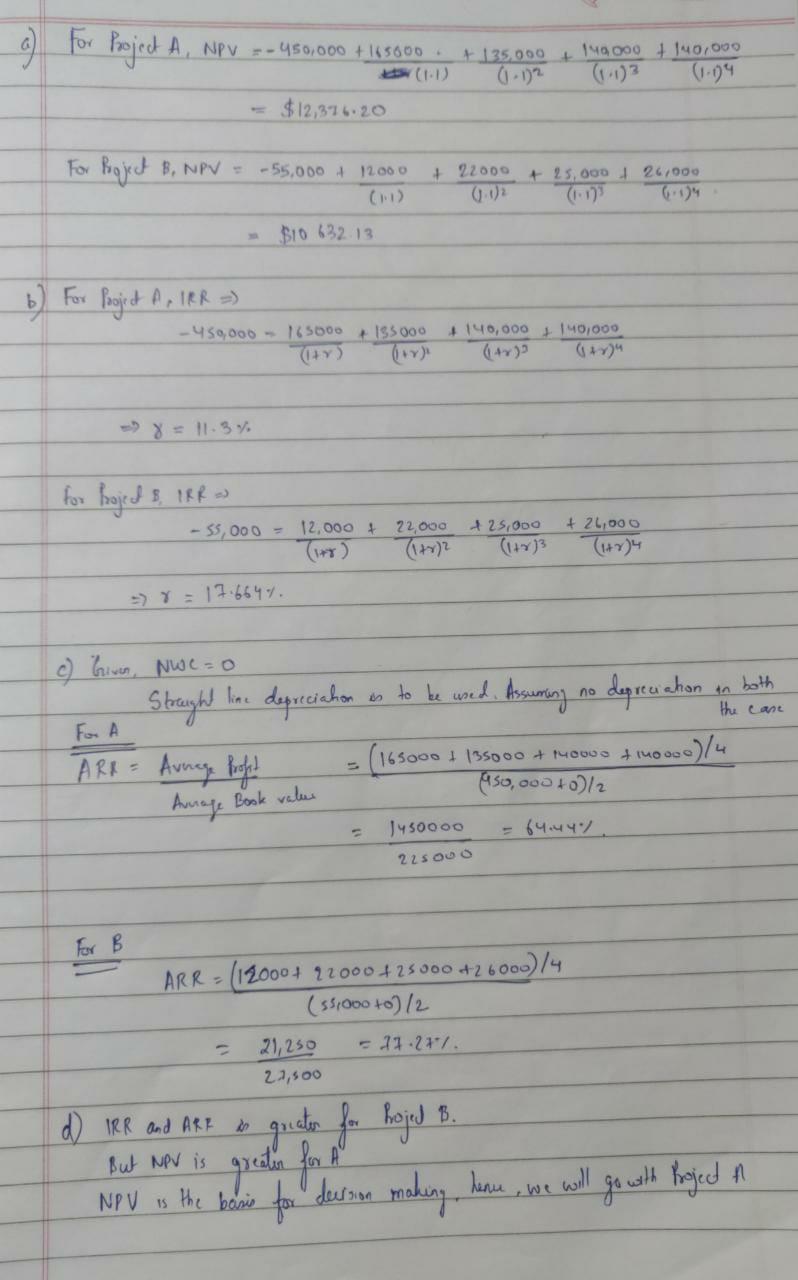 a) For Project A, NPV = -450,000 + 165000/(1.1) + 135,000/(1.1)2 + 140000/(1.1)3 + 140,000/(1.1)4
= $12,376.20
For Project B, NPV = -55,000 + 12000/(1.1) + 22000/(1.1)2 + 25,000/(1.1)3 + 26,000/(1.1)4
= $10 632.13
b) For Project A, IRR =>
-450,000 = 165000/(1+r) + 135000/(1+r)2 + 140,000/(1+r)3 + 140,000/(1+r)4
=> r = 11.3%
For Project B, IRR =>
-55,000 = 12,000/(1+r) + 22,000/(1+r)2 + 25,000/(1+r)3 + 26,000/(1+r)4
=> r = 17.664%.
c) Given, NWC = 0
Straight line depreciation is to be used. Assuming no depreciation in both the case
For A
ARR = Average Profit/Average Book value = (165000 + 135000 + 140000 + 140000)/4/(450,000+0)/2
= 1450000/225000 = 64.44%.
For B
ARR = (12000 + 22000 + 25000 + 26000)/4/(55,000+0)/2
= 21,250/27,500 = 77.27%.
d) IRR and ARR is greater for Project B.
But NPV is greater for A
NPV is the basis for decision making, hence, we will go with Project A